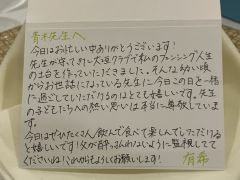 青木先生へ
今日はお忙しい中ありがとうございます!
先生が守ってきた大垣クラブで私のフェンシング人生
の土台を作っていただきました。そんな幼い頃
からお世話になっている先生に今日この日を一緒
に過ごしていただけるのはとても嬉しいです。先生
の子どもたちへの熱い思いは本当に尊敬していま
す。
今日はぜひたくさん飲んで食べて楽しんでいただける
と嬉しいです!父が酔っぱらわないように監視してて
くださいね!これからもよろしくお願いします!
有希